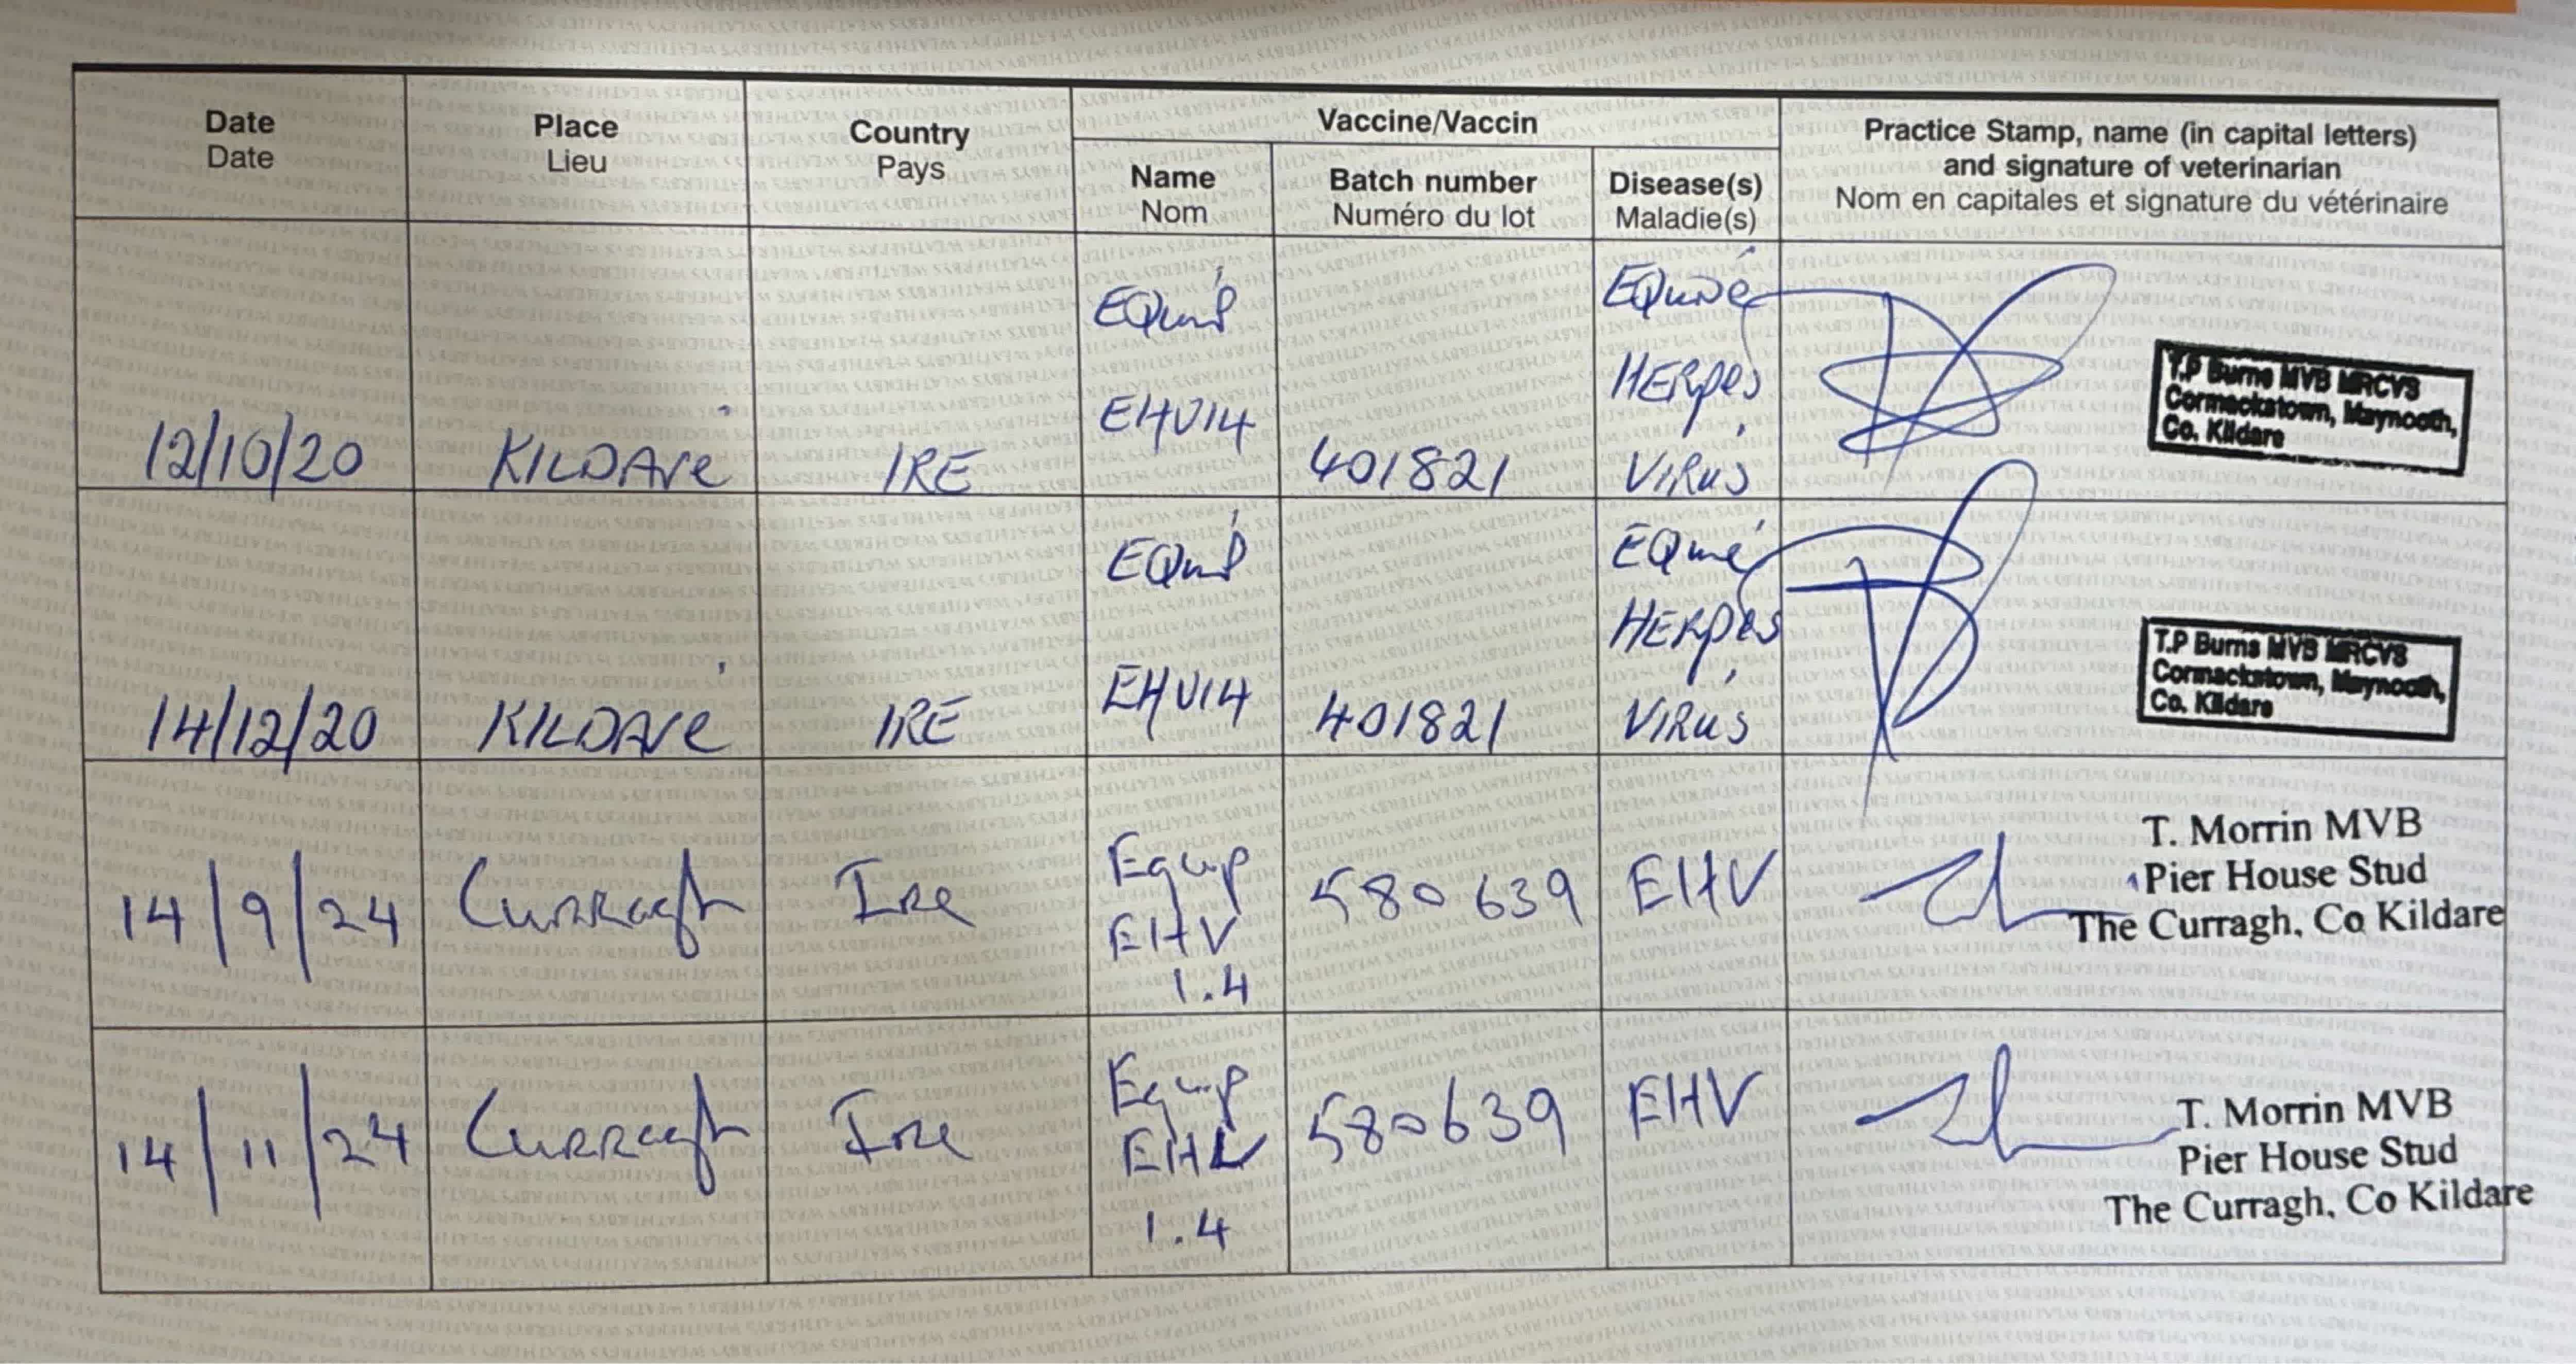 Date
Date
Place
Lieu
Country
Pays
Vaccine/Vaccin
Name
Nom
Batch number
Numéro du lot
Disease(s)
Maladie(s)
Practice Stamp, name (in capital letters)
and signature of veterinarian
Nom en capitales et signature du vétérinaire
12/10/20
KILDARe
IRE
EQuiP
EHV14
401821
EQuiNe
HERpes
ViRus
T.P Burns MVB MRCVS
Cormackstown, Maynooth,
Co. Kildare
14/12/20
KILDARe
IRE
EQuiP
EHV14
401821
EQuine
HERpes
ViRus
T.P Burns MVB MRCVS
Cormackstown, Maynooth,
Co. Kildare
14/9/24
Curragh
Ire
Equip
EHV
1.4
580639
EHV
T. Morrin MVB
Pier House Stud
The Curragh, Co Kildare
14/11/24
Curragh
Ire
Equip
EHV
1.4
580639
EHV
T. Morrin MVB
Pier House Stud
The Curragh, Co Kildare